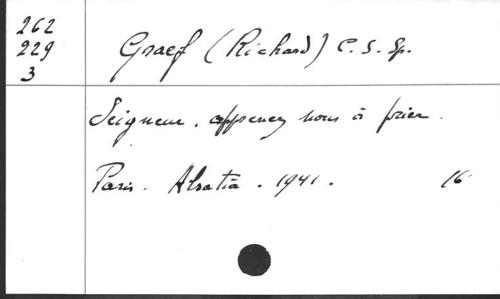 262
229
3
Graef (Richard) C. S. Sp.
Seigneur, appenez nous à prier.
Paris. Alsatia. 1941. 16